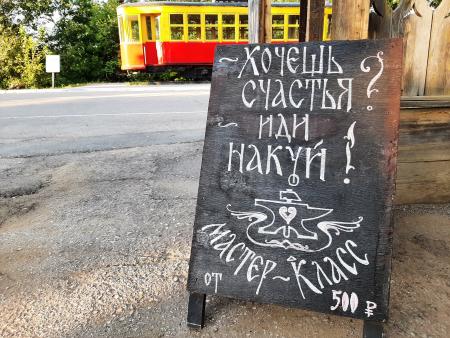 ~ХОЧЕШЬ
СЧАСТЬЯ?
ИДИ
НАКУЙ!
МАСТЕР~КЛАСС
ОТ 500 ₽